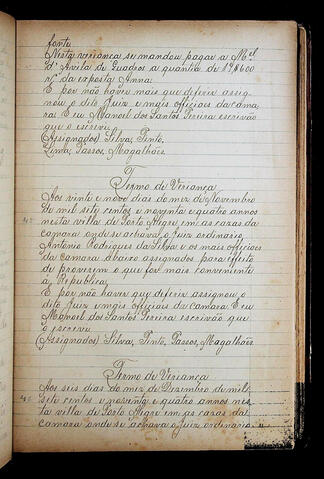 fonte
Nesta veriança se mandou pagar a M.el
d' Avila de Quadros a quantia de 19$600
r.s da exposta Anna.
E por não haver mais que deferir assig-
nou o dito Juiz e mais officiaes da cama-
ra. E eu Manoel dos Santos Pereira escrivão
que o escrevi
(Assignados) Silva, Pinto,
Lima, Passos, Magalhães.
Termo de Veriança
Aos vinte e nove dias do mez de Novembro
de mil sete centos e noventa e quatro annos
nesta villa de Porto Alegre, em as cazas da
camara onde se achava o Juiz ordinario
Antonio Rodrigues da Silva e os mais officiaes
da camara abaixo assignados para effeito
de proverem o que for mais conveniente
a Republica,
E por não haver que deferir assignou o
dito Juiz e mais officiaes da camara E eu
Manoel dos Santos Pereira escrivão que
o escrevi
(Assignados) Silva, Pinto, Passos, Magalhães
Termo de Veriança
Aos seis dias do mez de Dezembro de mil
sete centos e noventa e quatro annos nes-
ta villa de Porto Alegre em as cazas da
camara onde se achava o Juiz ordinario